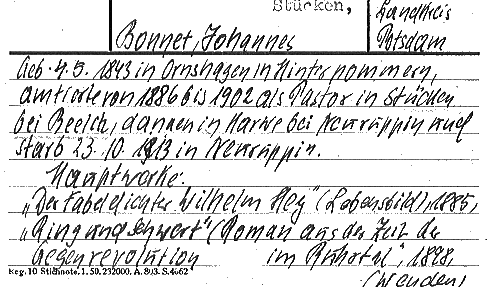 Stücken,
Landkreis
Potsdam
Bonnet, Johannes
Geb. 4.5. 1843 in Ornshagen in Hinterpommern,
amtierte von 1886 bis 1902 als Pastor in Stücken
bei Beelitz, dann in Karwe bei Neuruppin und
starb 23.10.1913 in Neuruppin.
Hauptwerke:
„Der Fabeldichter Wilhelm Hey" (Lebensbild), 1885,
„Ring und Schwert" (Roman aus der Zeit der
Gegenrevolution im Ruhrtal", 1898,
Reg. 10 Stichnote. 1. 50. 232000. A. 893. S. 4662
(Wenden)